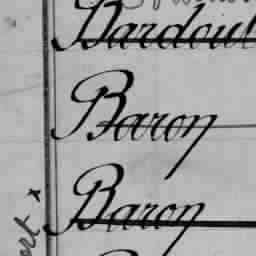 Bardout
Baron
Baron